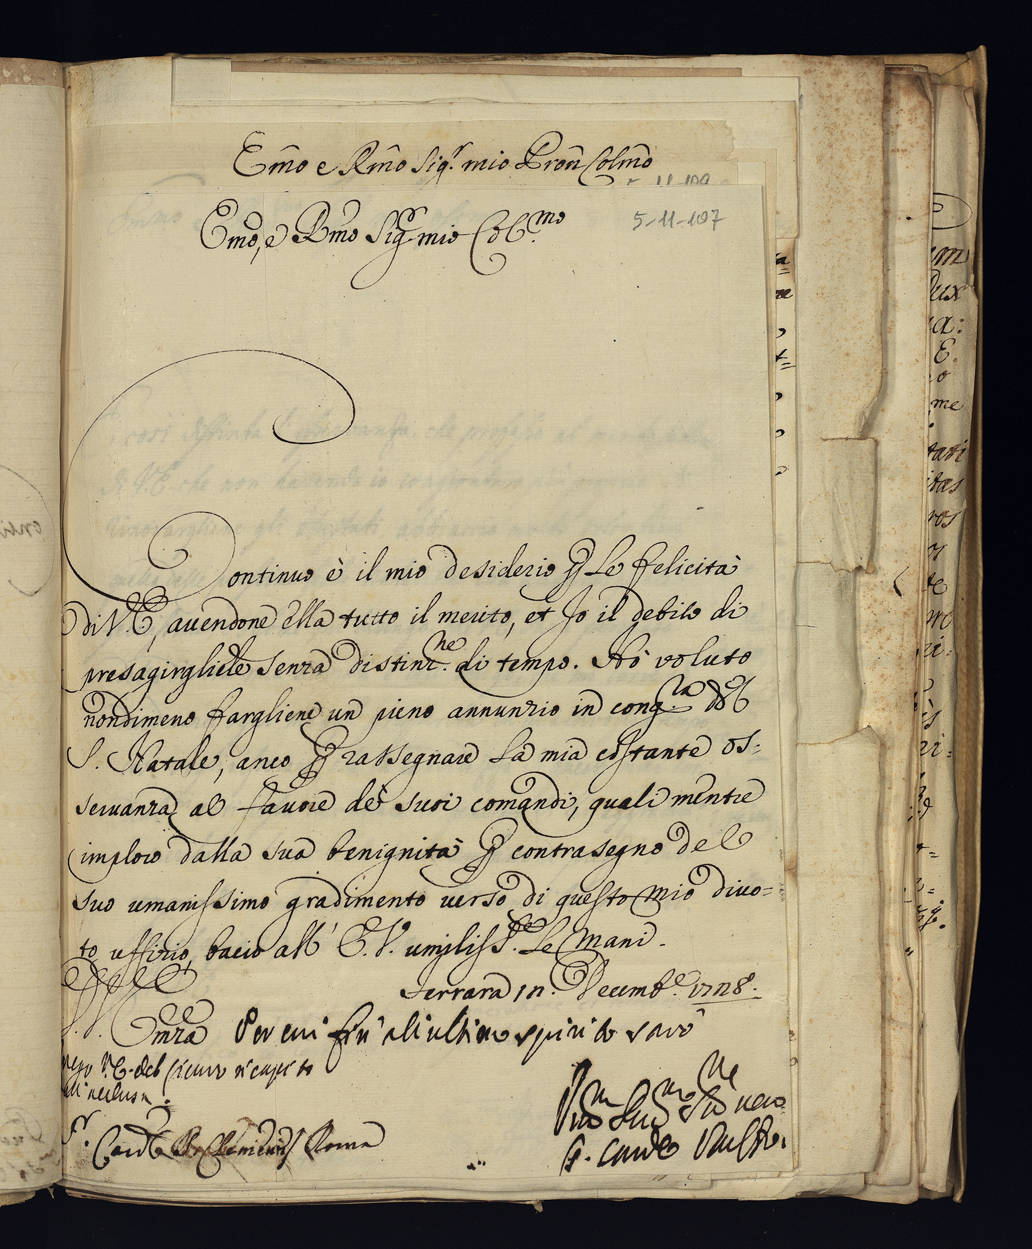 Emo e Rmo Sigr. mio Pron Colmo
5-11-107
Emo, e Rmo Sigr mio Col.mo
Continuo è il mio desiderio p Le felicità
di V.E, auendone ella tutto il merito, et Jo il debito di
presagirgliele senza distinz.ne di tempo. Hò voluto
nondimeno fargliene un pieno annunzio in cong.ra del
S. Natale, anco p rassegnare La mia costante os-
seruanza al fauore de' suoi comandi, quali mentre
imploro dalla sua benignità p contrasegno del
suo umanissimo gradimento uerso di questo mio diuo-
to uffizio, bacio all' E.V. umiliss.te Le Mani.
Ferrara 1n. Decemb.e 1728.
V. Emza Per cui fin all'ultimo spirito sarò
V.E. del sicuro ricapito
dell'inclusa.
Sr. Card. S. Clemente Roma
Vmo Deu.mo Se.re uero
Card.